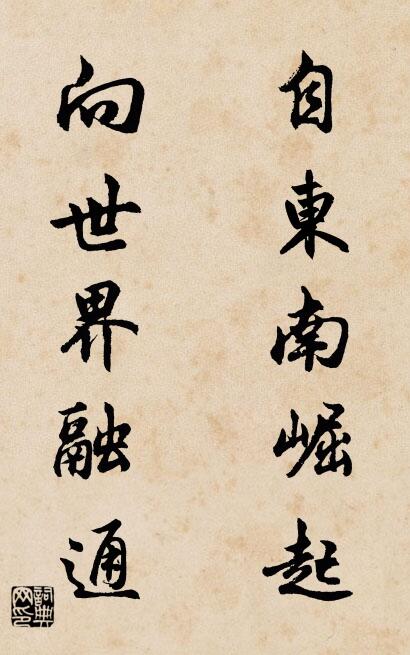 自東南崛起
向世界融通
詞典網印